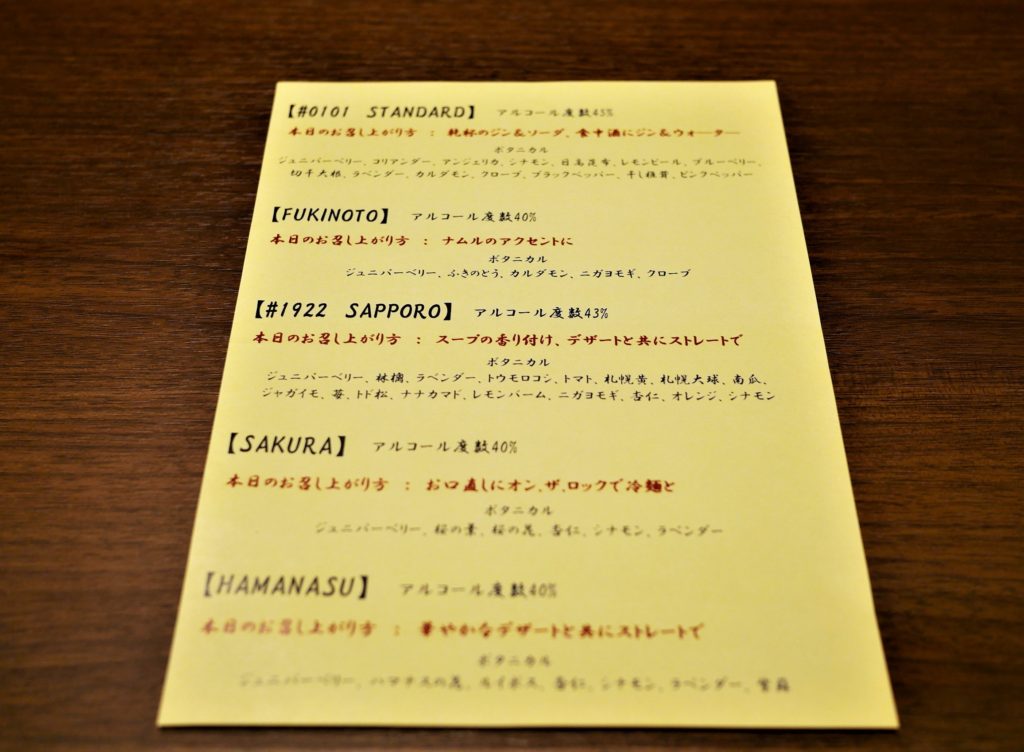 【#0101 STANDARD】 アルコール度数45%
本日のお召し上がり方 : 乾杯のジン&ソーダ、食中酒にジン&ウォーター
ボタニカル
ジュニパーベリー、コリアンダー、アンジェリカ、シナモン、日高昆布、レモンピール、ブルーベリー、
切干大根、ラベンダー、カルダモン、クローブ、ブラックペッパー、干し椎茸、ピンクペッパー
【FUKINOTO】 アルコール度数40%
本日のお召し上がり方 : ナムルのアクセントに
ボタニカル
ジュニパーベリー、ふきのとう、カルダモン、ニガヨモギ、クローブ
【#1922 SAPPORO】 アルコール度数43%
本日のお召し上がり方 : スープの香り付け、デザートと共にストレートで
ボタニカル
ジュニパーベリー、林檎、ラベンダー、トウモロコシ、トマト、札幌黄、札幌大球、南瓜、
ジャガイモ、苺、トド松、ナナカマド、レモンバーム、ニガヨモギ、杏仁、オレンジ、シナモン
【SAKURA】 アルコール度数40%
本日のお召し上がり方 : お口直しにオン、ザ、ロックで冷麺と
ボタニカル
ジュニパーベリー、桜の葉、桜の花、杏仁、シナモン、ラベンダー
【HAMANASU】 アルコール度数40%
本日のお召し上がり方 : 華やかなデザートと共にストレートで
ボタニカル
ジュニパーベリー、ハマナスの花、ルイボス、杏仁、シナモン、ラベンダー、紫蘇